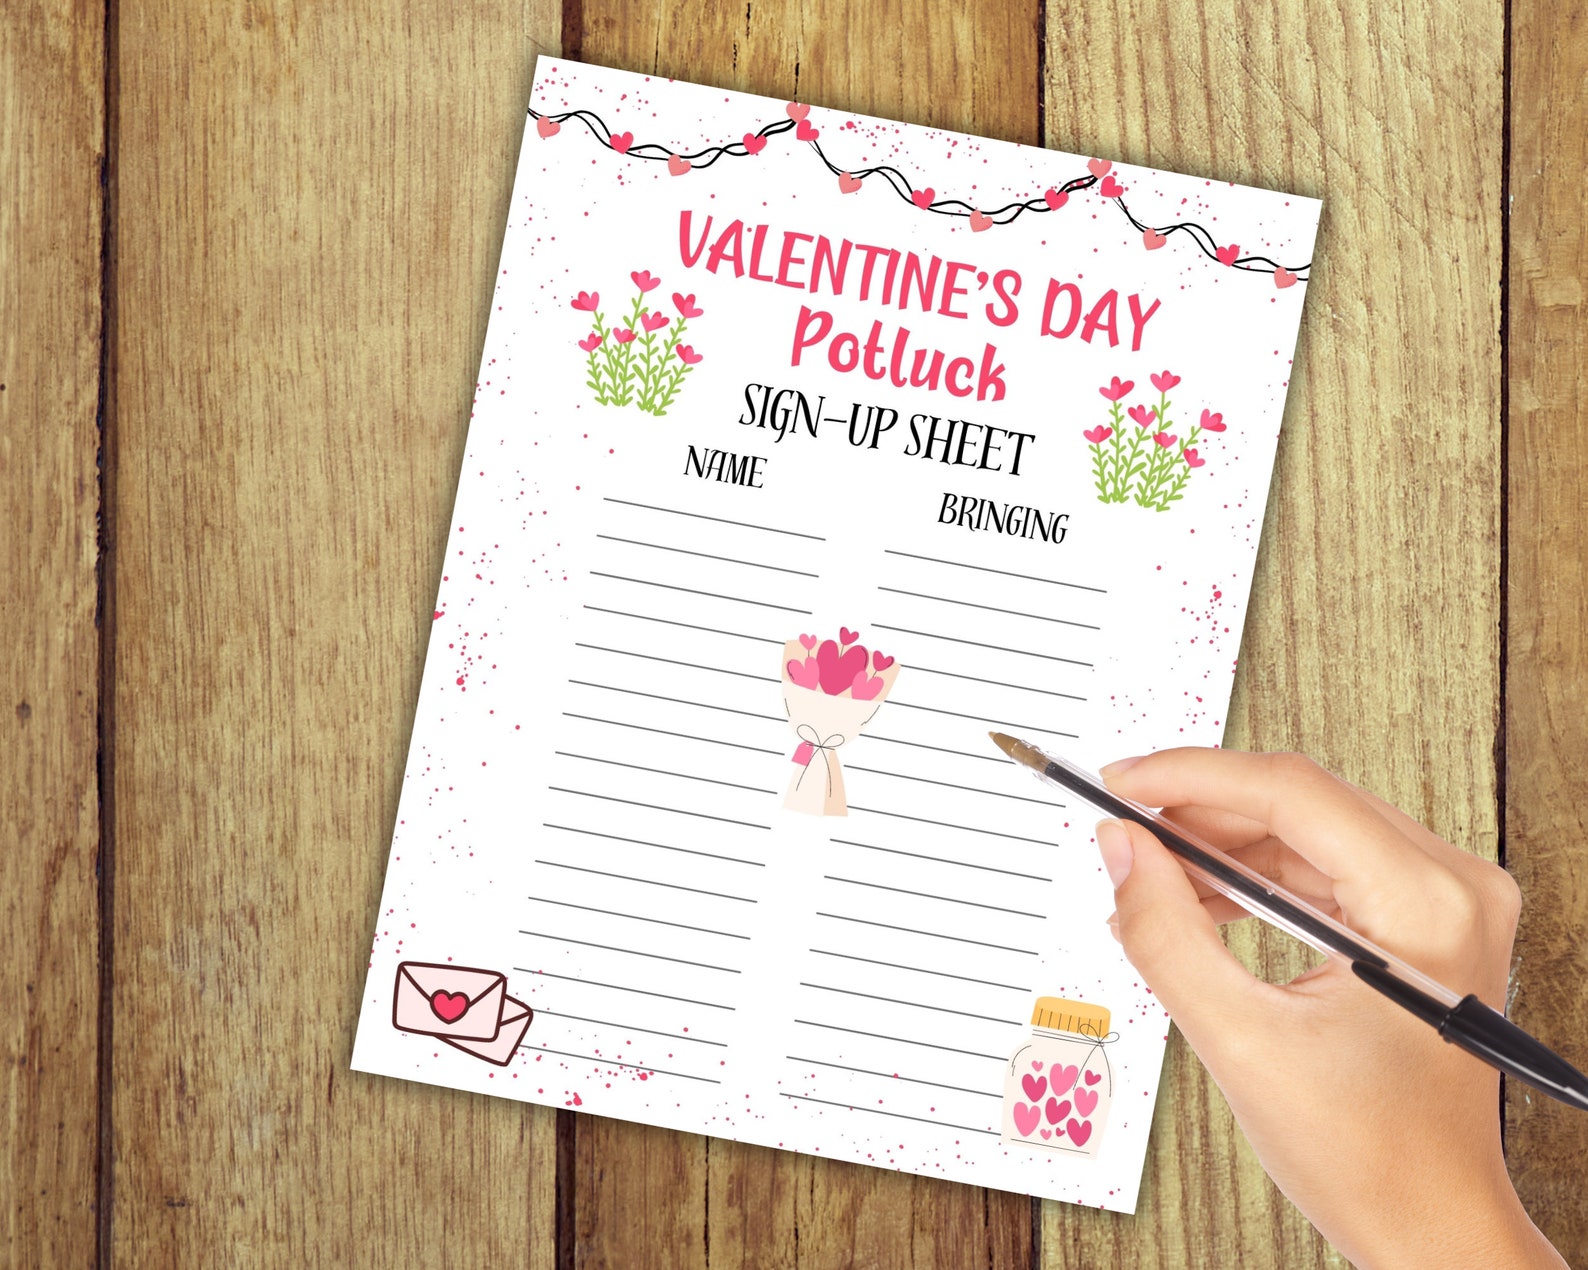 VALENTINE'S DAY
Potluck
SIGN-UP SHEET
NAME
BRINGING